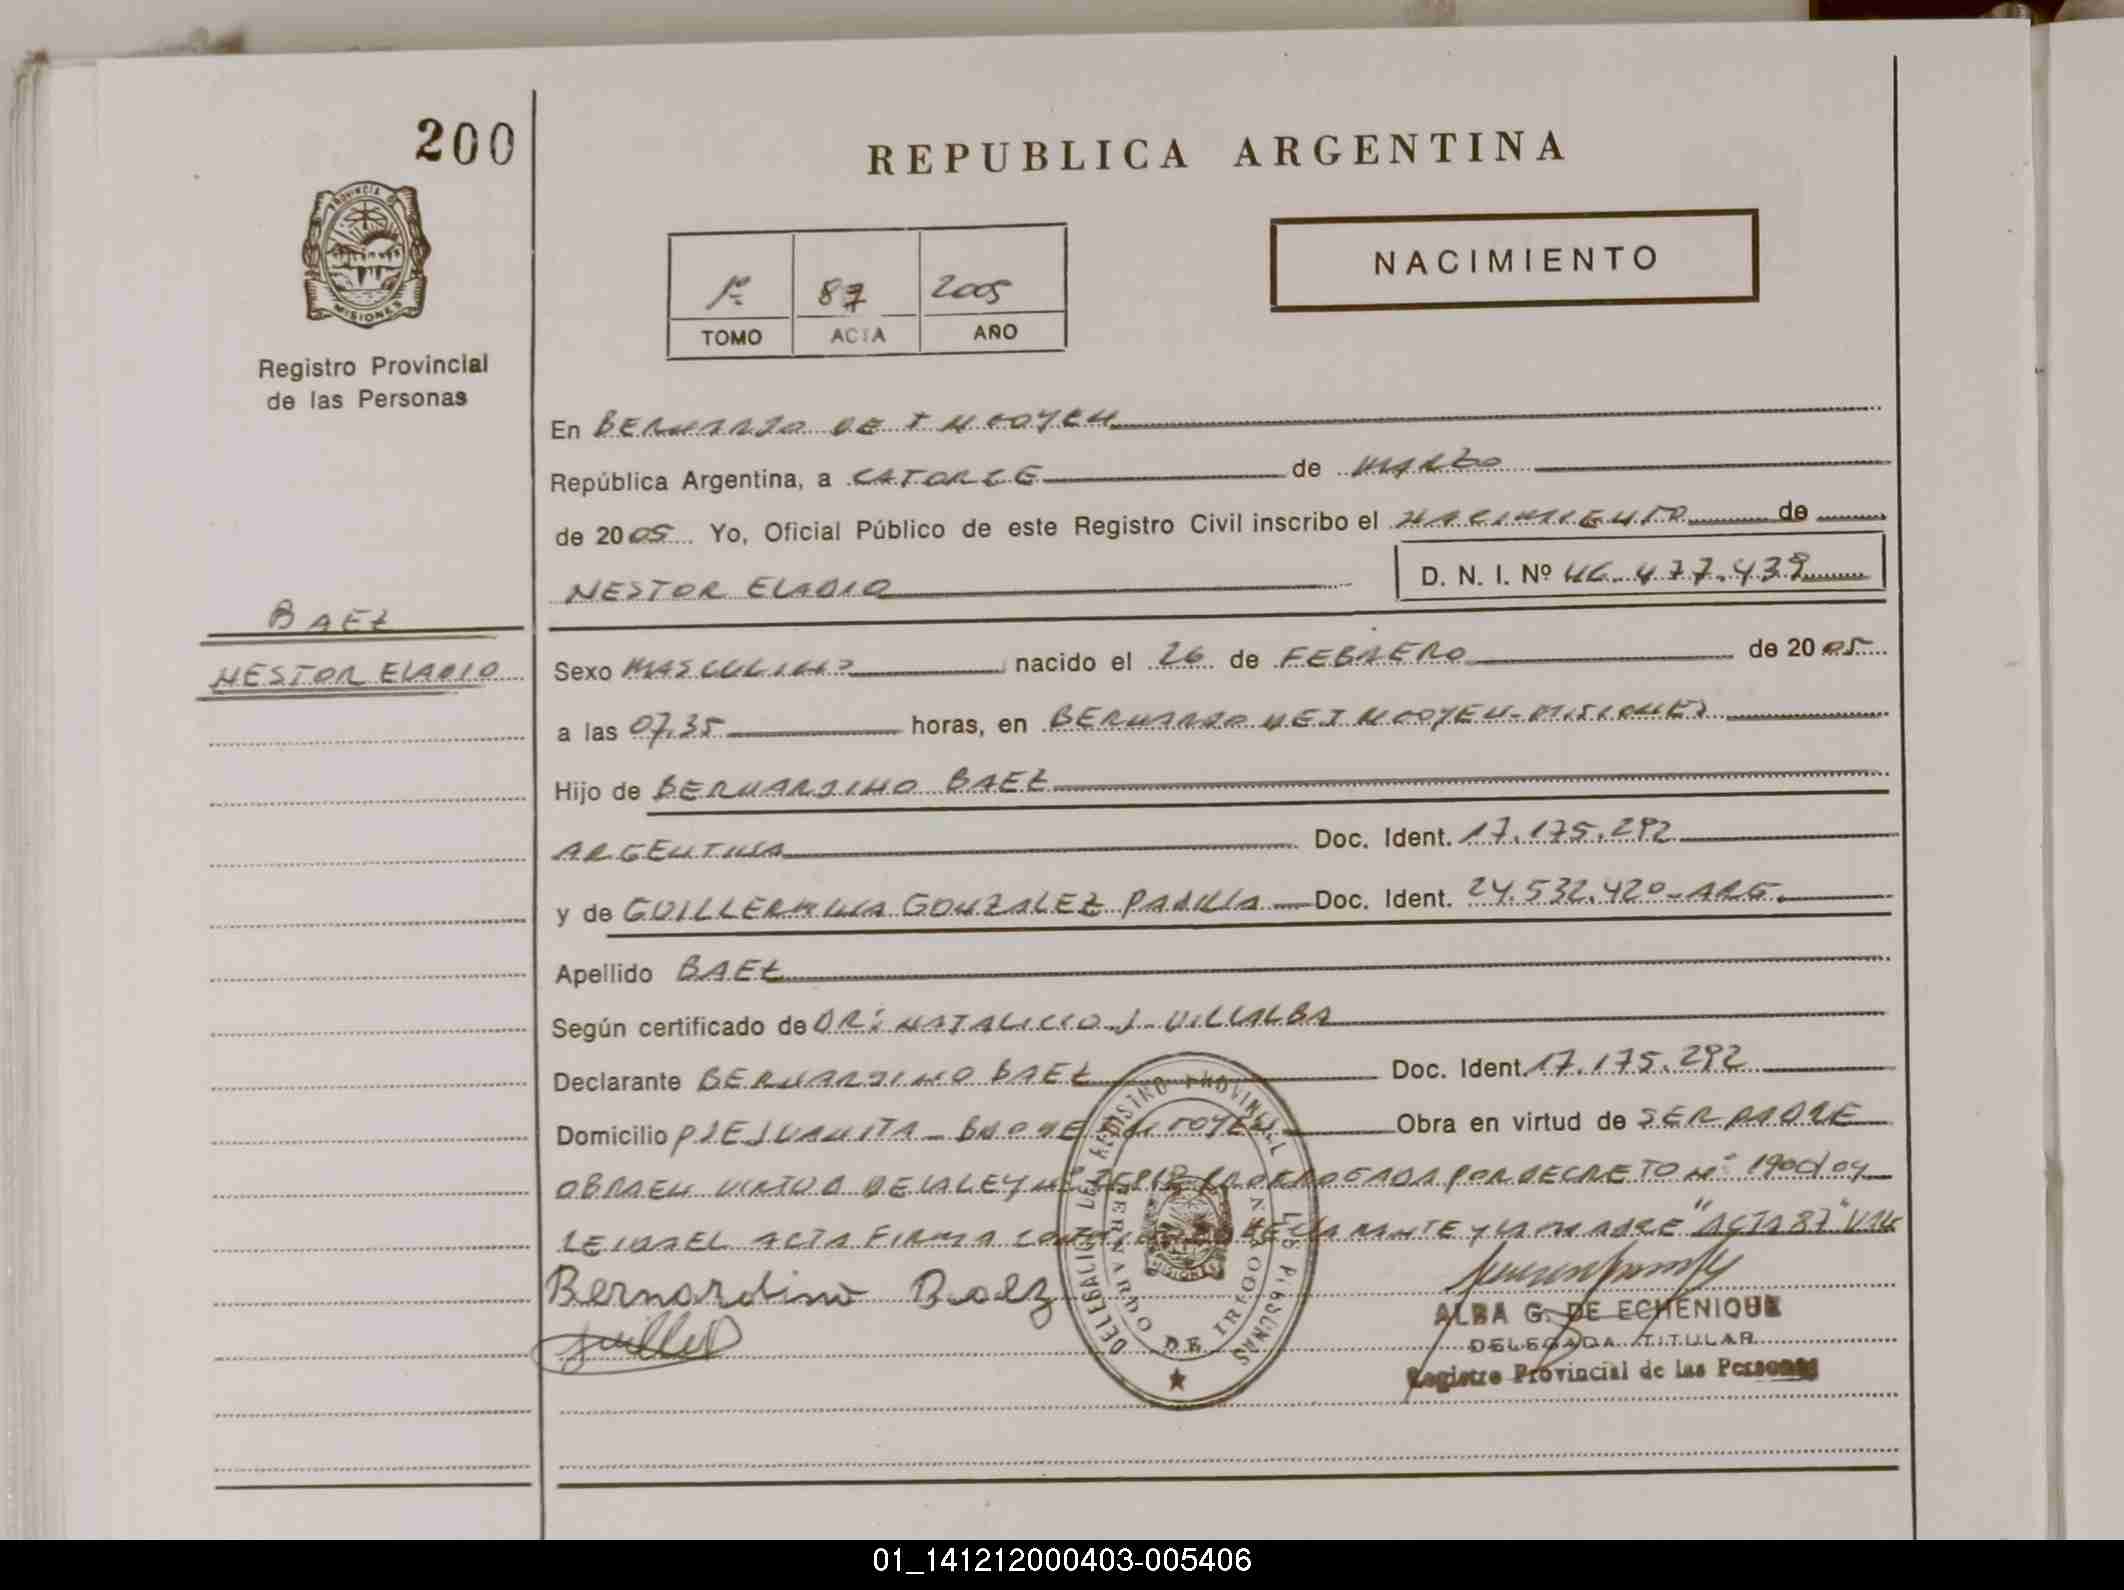 200
REPUBLICA ARGENTINA
PROVINCIA DE MISIONES
1º 87 2005
TOMO ACTA AÑO
NACIMIENTO
Registro Provincial
de las Personas
En BERNARDO DE IRIGOYEN
República Argentina, a CATORCE de MARZO
de 2005 Yo, Oficial Público de este Registro Civil inscribo el NACIMIENTO de
NESTOR ELADIO D. N. I. Nº 46.477.439
BAEZ
NESTOR ELADIO
Sexo MASCULINO nacido el 26 de FEBRERO de 2005
a las 07,35 horas, en BERNARDO DE IRIGOYEN - MISIONES
Hijo de BERNARDINO BAEZ
ARGENTINA Doc. Ident. 17.175.292
y de GUILLERMINA GONZALEZ PADILLA Doc. Ident. 24.532.420 - ARG.
Apellido BAEZ
Según certificado de DR: NATALICIO J. VILLALBA
Declarante BERNARDINO BAEZ Doc. Ident. 17.175.292
Domicilio PJE JUANITA - BDO DE IRIGOYEN Obra en virtud de SER PADRE
OBRA EN VIRTUD DE LA LEY Nº PRORROGADA POR DECRETO Nº 1900/04
LEIDA EL ACTA FIRMA CONMIGO EL DECLARANTE Y LA MADRE "ACTA 87" VALE
Bernardino Baez
Guiller
DELEGACION DEL REGISTRO PROVINCIAL DE LAS PERSONAS
BERNARDO DE IRIGOYEN
MISIONES
ALBA G. DE ECHENIQUE
DELEGADA TITULAR
Registro Provincial de las Personas
01_141212000403-005406